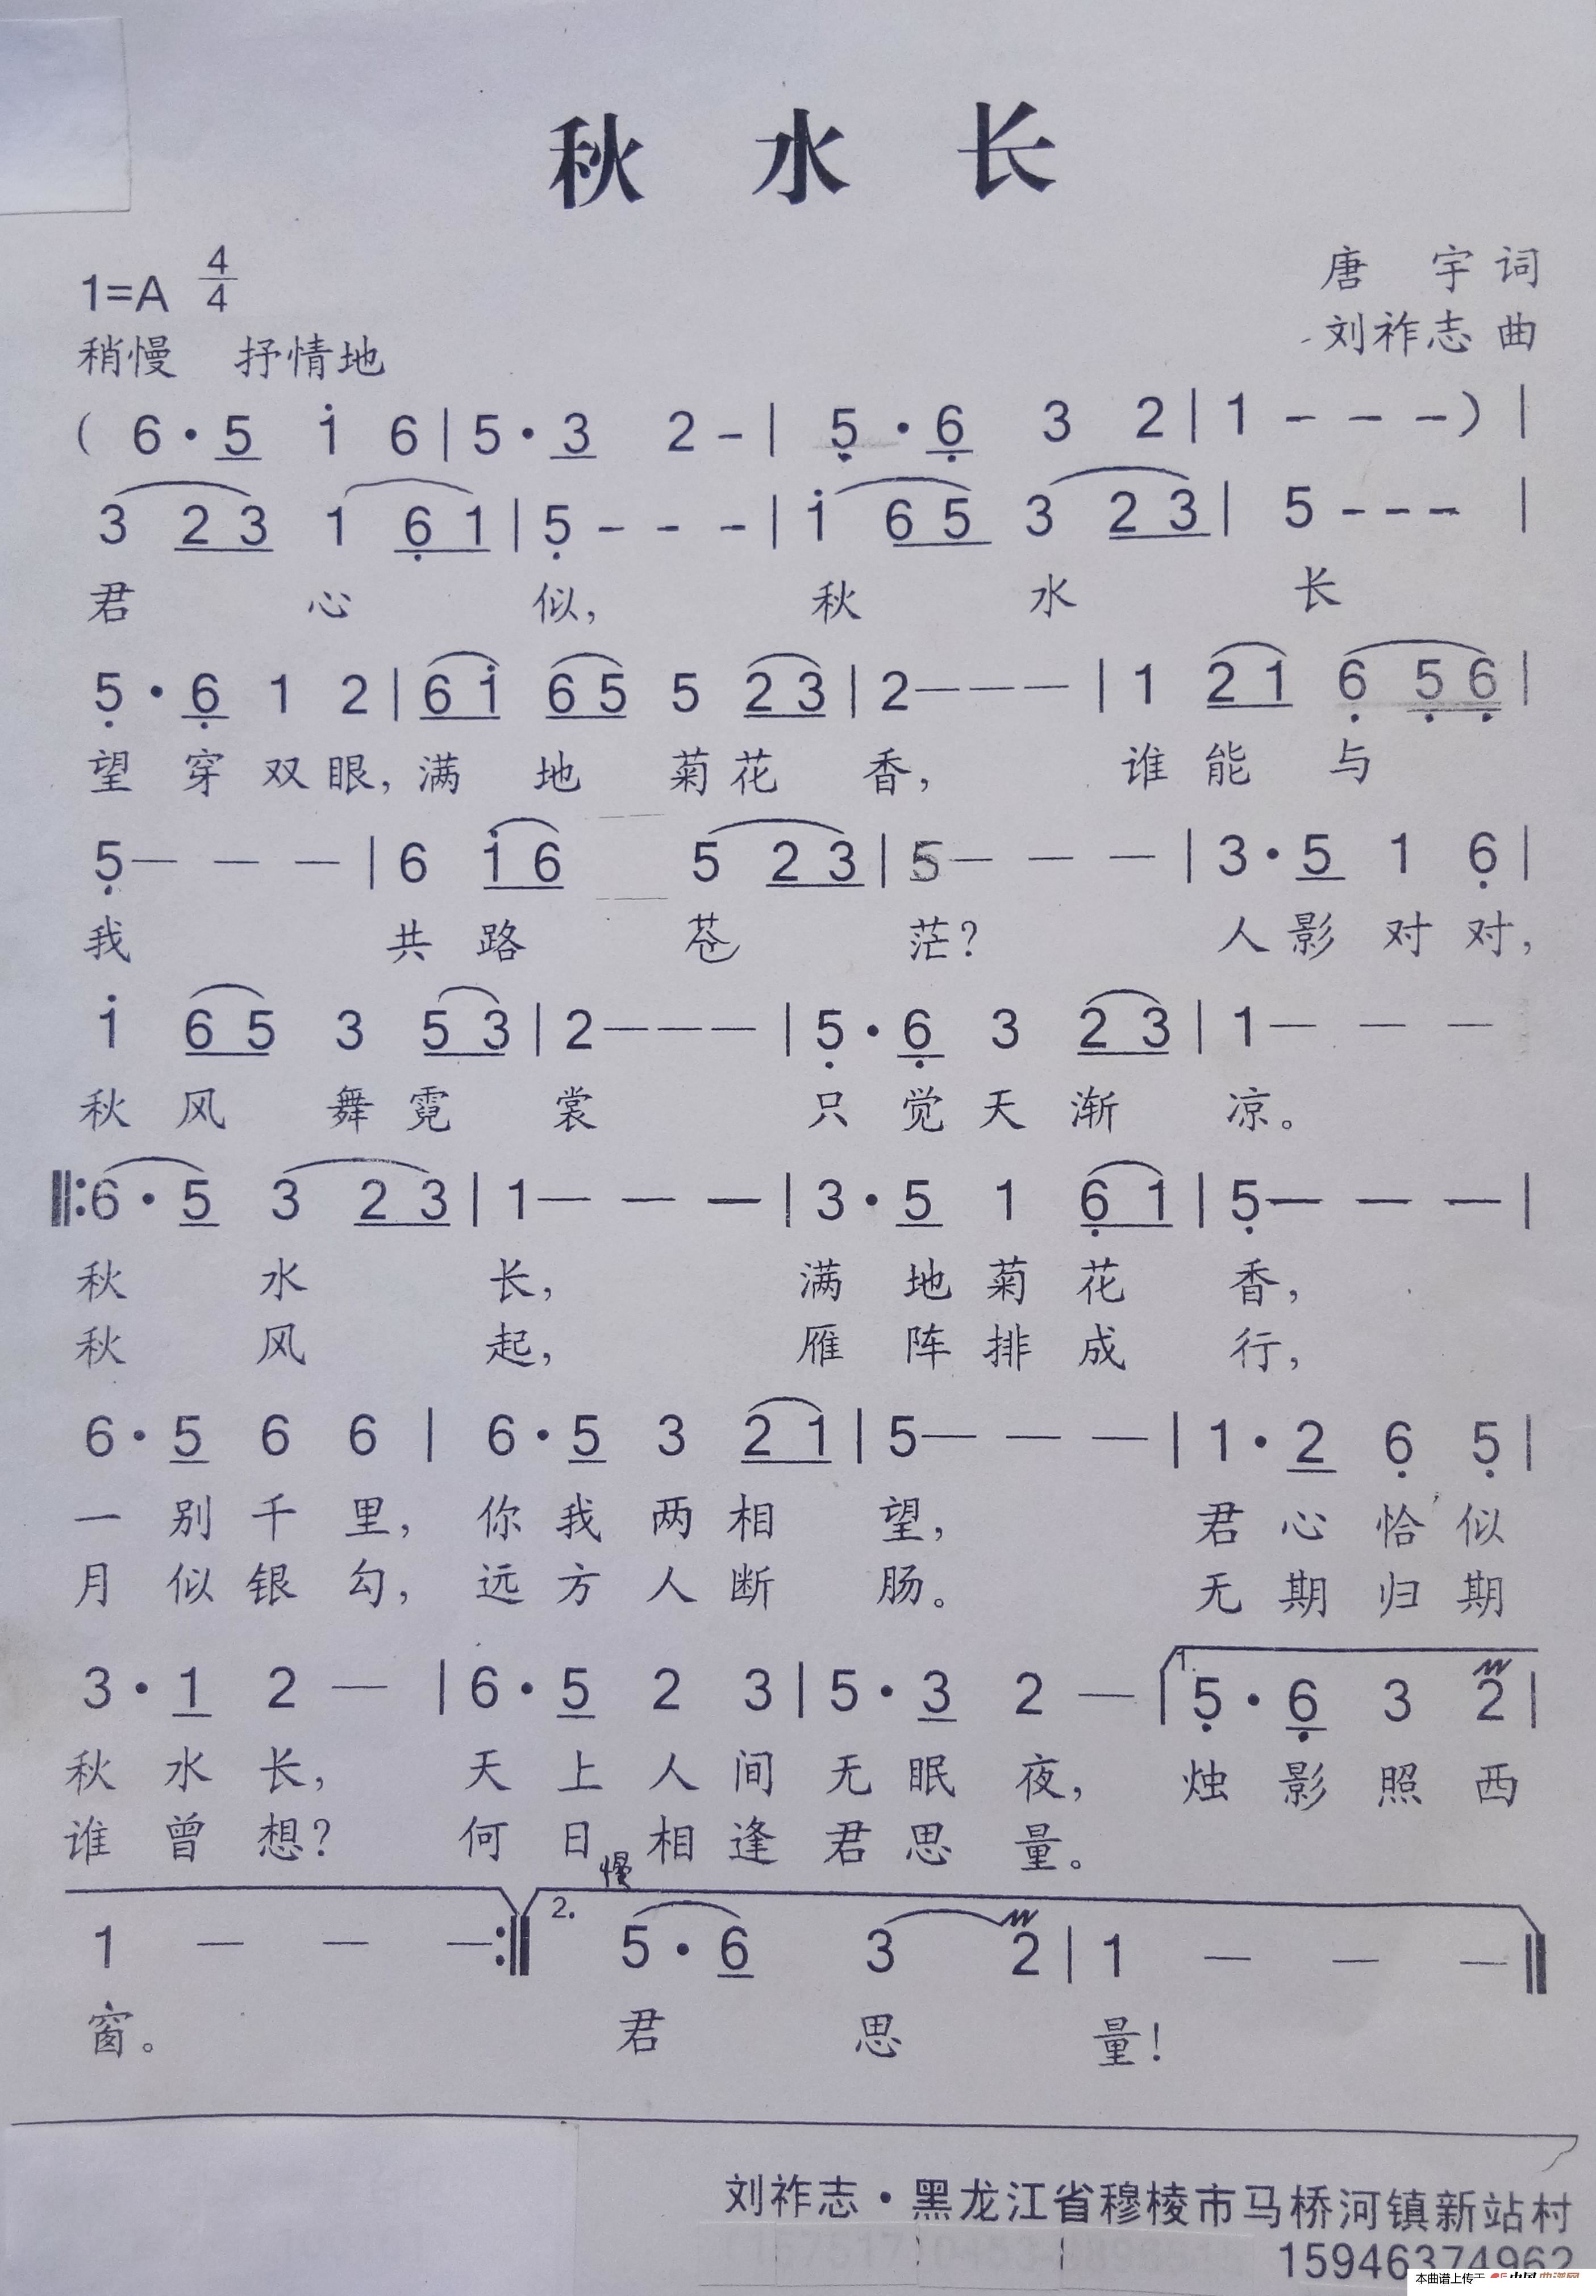 秋 水 长
1=A 4/4
唐 宇 词
稍慢 抒情地
刘祚志 曲
( 6 · 5 i 6 | 5 · 3 2 - | 5 · 6 3 2 | 1 - - - ) |
3 2 3 1 6 1 | 5 - - - | i 6 5 3 2 3 | 5 - - - |
君 心 似, 秋 水 长
5 · 6 1 2 | 6 i 6 5 5 2 3 | 2 — — — | 1 2 1 6 5 6 |
望 穿 双 眼, 满 地 菊 花 香, 谁 能 与
5 — — — | 6 i 6 5 2 3 | 5 — — — | 3 · 5 1 6 |
我 共 路 苍 茫? 人 影 对 对,
i 6 5 3 5 3 | 2 — — — | 5 · 6 3 2 3 | 1 — — —
秋 风 舞 霓 裳 只 觉 天 渐 凉。
‖: 6 · 5 3 2 3 | 1 — — — | 3 · 5 1 6 1 | 5 — — — |
秋 水 长, 满 地 菊 花 香,
秋 风 起, 雁 阵 排 成 行,
6 · 5 6 6 | 6 · 5 3 2 1 | 5 — — — | 1 · 2 6 5 |
一 别 千 里, 你 我 两 相 望, 君 心 恰 似
月 似 银 勾, 远 方 人 断 肠。 无 期 归 期
3 · 1 2 — | 6 · 5 2 3 | 5 · 3 2 — | 1. 5 · 6 3 2 |
秋 水 长, 天 上 人 间 无 眠 夜, 烛 影 照 西
谁 曾 想? 何 日 相 逢 君 思 量。
慢
1 — — — :‖ 2. 5 · 6 3 2 | 1 — — — ‖
窗。 君 思 量!
刘祚志·黑龙江省穆棱市马桥河镇新站村
15946374962
本曲谱上传于 中国曲谱网